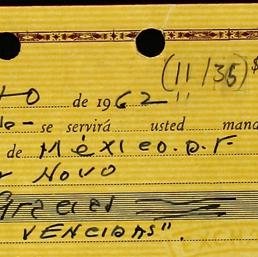 (11/36) $
TO de 1962
se servirá usted mand
de México. D.F.
NOVO
Gracias
VENCIDAS".